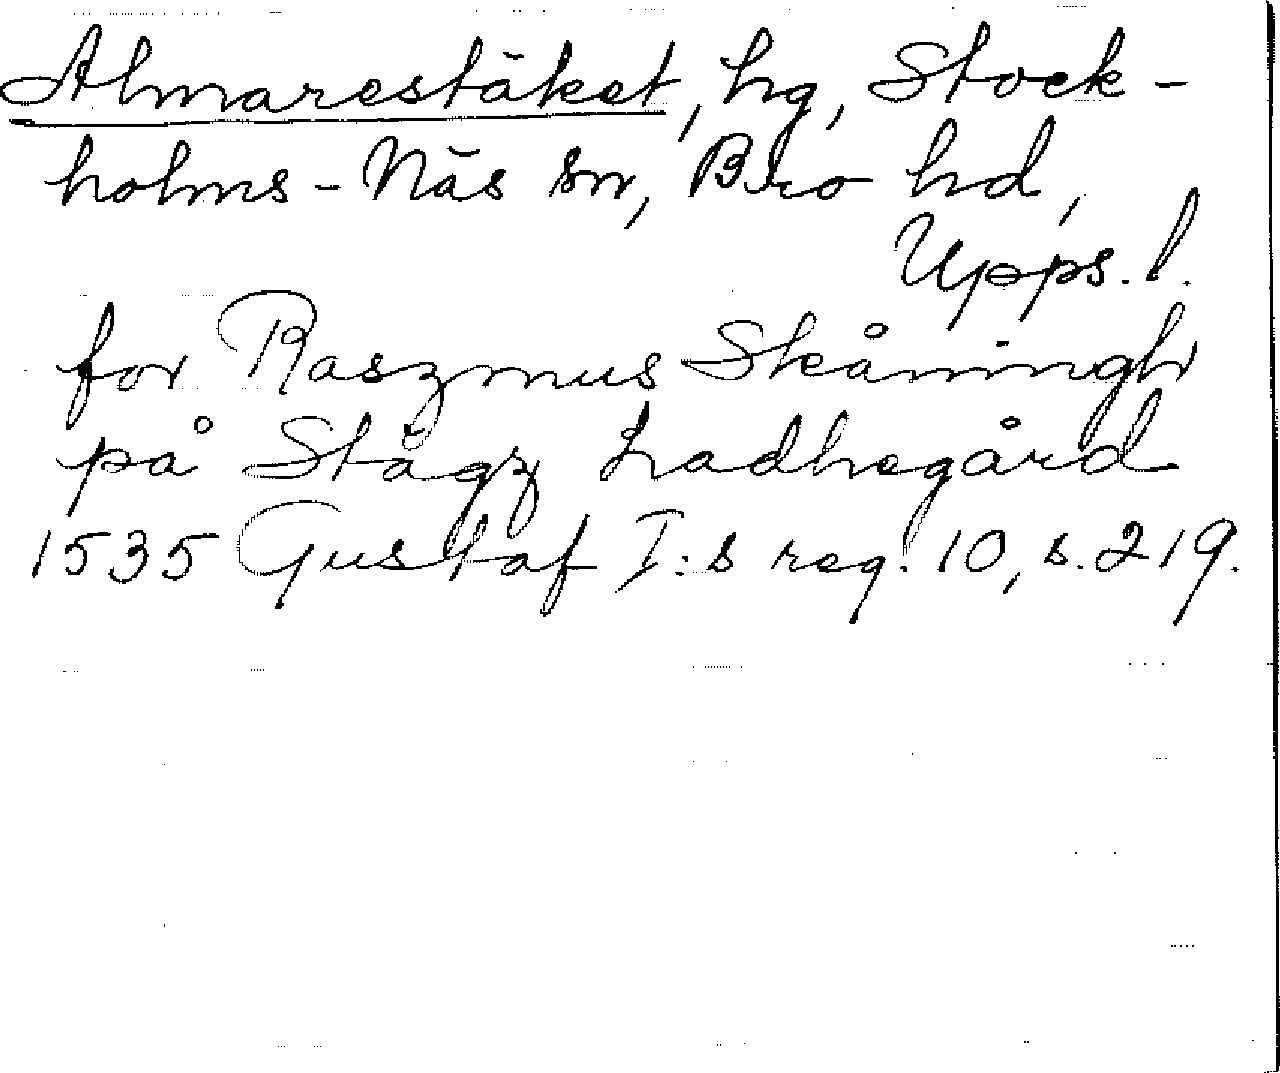 Almarestäket, hg, Stock-
holms-Näs sn, Bro hd,
Upps. l.
for Raszmus Skåningh
på Stägz Ladhegård
1535 Gustaf I:s reg. 10, s. 219.